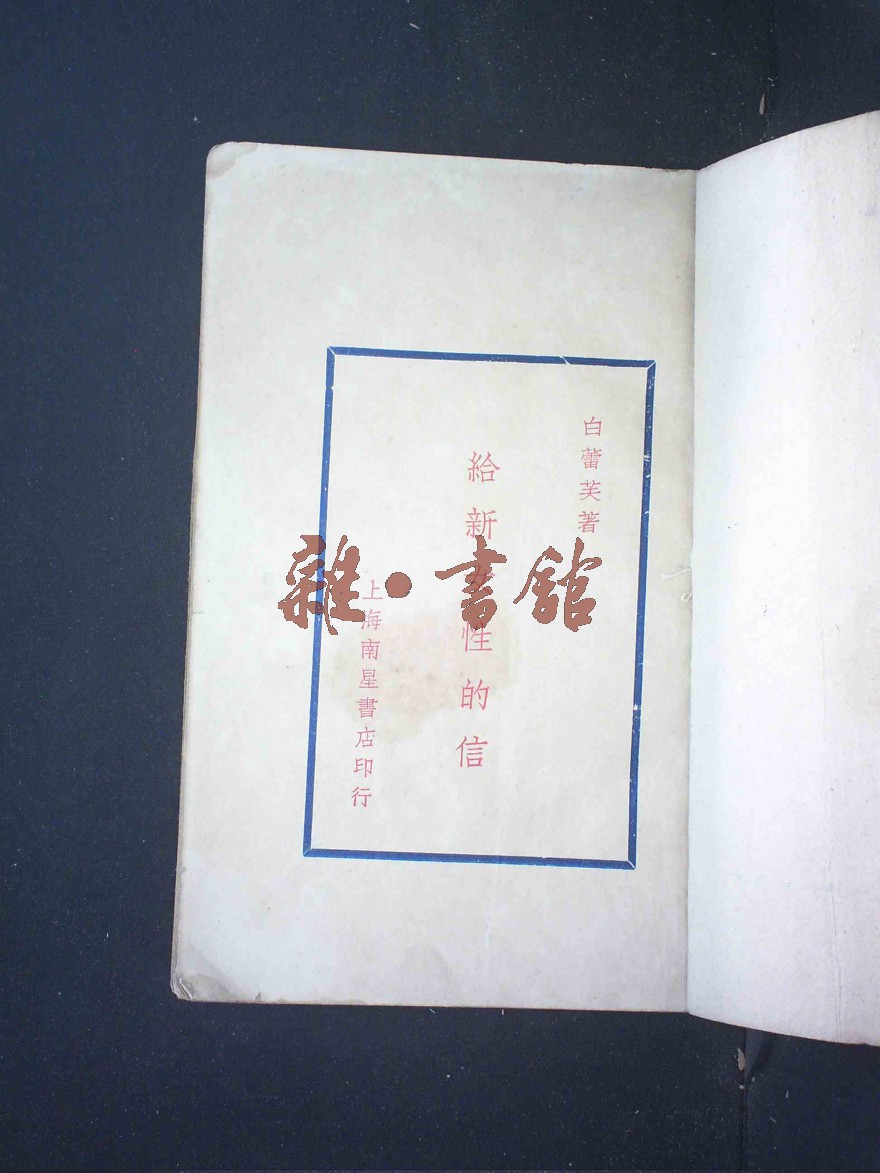 白蕾芙著
給新女性的信
上海南星書店印行
雜·書館